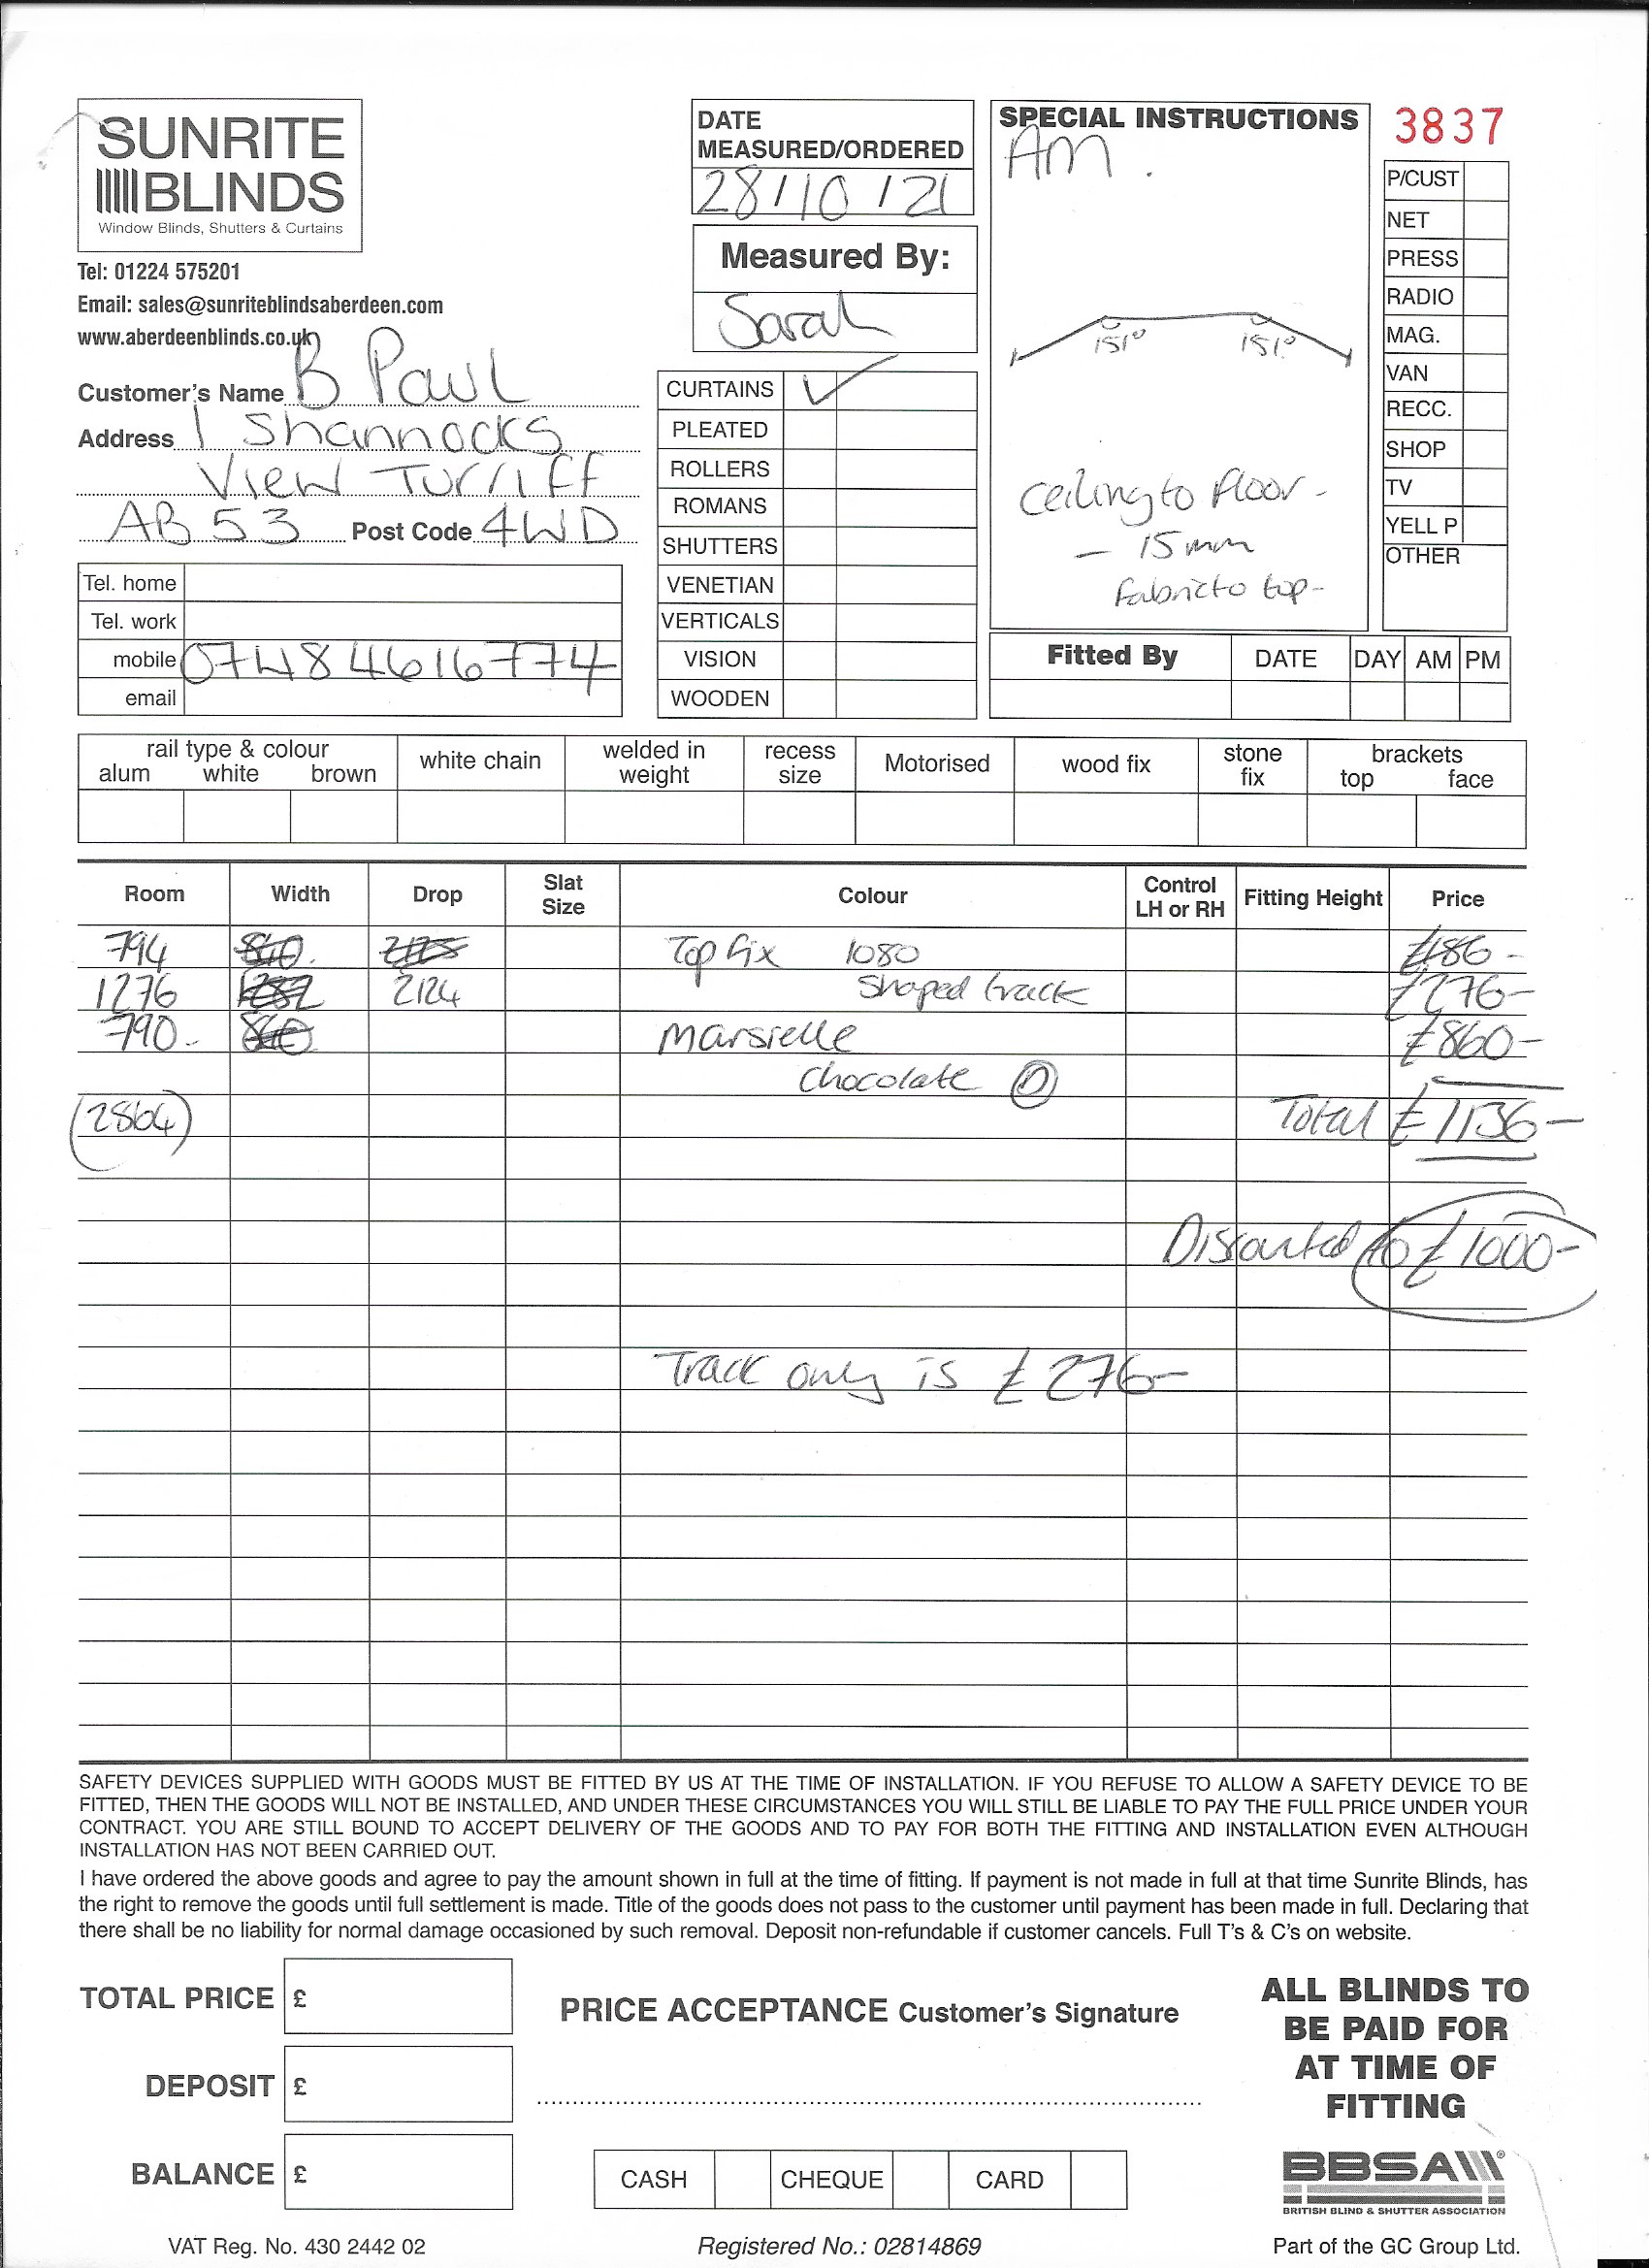 SUNRITE
BLINDS
Window Blinds, Shutters & Curtains
Tel: 01224 575201
Email: sales@sunriteblindsaberdeen.com
www.aberdeenblinds.co.uk
Customer's Name B Paul
Address 1 Shannocks
View Turriff
AB53 Post Code 4WD
Tel. home
Tel. work
mobile 07484616774
email
DATE
MEASURED/ORDERED
28/10/21
Measured By:
Sarah
CURTAINS ✓
PLEATED
ROLLERS
ROMANS
SHUTTERS
VENETIAN
VERTICALS
VISION
WOODEN
SPECIAL INSTRUCTIONS
AM.
151° 151°
Ceiling to floor -
- 15mm
Fabric to top -
3837
P/CUST
NET
PRESS
RADIO
MAG.
VAN
RECC.
SHOP
TV
YELL P
OTHER
Fitted By DATE DAY AM PM
rail type & colour
alum white brown
white chain
welded in
weight
recess
size
Motorised
wood fix
stone
fix
brackets
top face
Room Width Drop Slat Size Colour Control LH or RH Fitting Height Price
794 840. Top fix 1080 £186-
1276 1282 2124 Shaped track £276-
790- 840 Marsielle £860-
Chocolate D
(2864) Total £1136-
Discounted to £1000-
Track only is £276-
SAFETY DEVICES SUPPLIED WITH GOODS MUST BE FITTED BY US AT THE TIME OF INSTALLATION. IF YOU REFUSE TO ALLOW A SAFETY DEVICE TO BE
FITTED, THEN THE GOODS WILL NOT BE INSTALLED, AND UNDER THESE CIRCUMSTANCES YOU WILL STILL BE LIABLE TO PAY THE FULL PRICE UNDER YOUR
CONTRACT. YOU ARE STILL BOUND TO ACCEPT DELIVERY OF THE GOODS AND TO PAY FOR BOTH THE FITTING AND INSTALLATION EVEN ALTHOUGH
INSTALLATION HAS NOT BEEN CARRIED OUT.
I have ordered the above goods and agree to pay the amount shown in full at the time of fitting. If payment is not made in full at that time Sunrite Blinds, has
the right to remove the goods until full settlement is made. Title of the goods does not pass to the customer until payment has been made in full. Declaring that
there shall be no liability for normal damage occasioned by such removal. Deposit non-refundable if customer cancels. Full T's & C's on website.
TOTAL PRICE £
DEPOSIT £
BALANCE £
PRICE ACCEPTANCE Customer's Signature
CASH CHEQUE CARD
ALL BLINDS TO
BE PAID FOR
AT TIME OF
FITTING
BBSA
BRITISH BLIND & SHUTTER ASSOCIATION
VAT Reg. No. 430 2442 02
Registered No.: 02814869
Part of the GC Group Ltd.